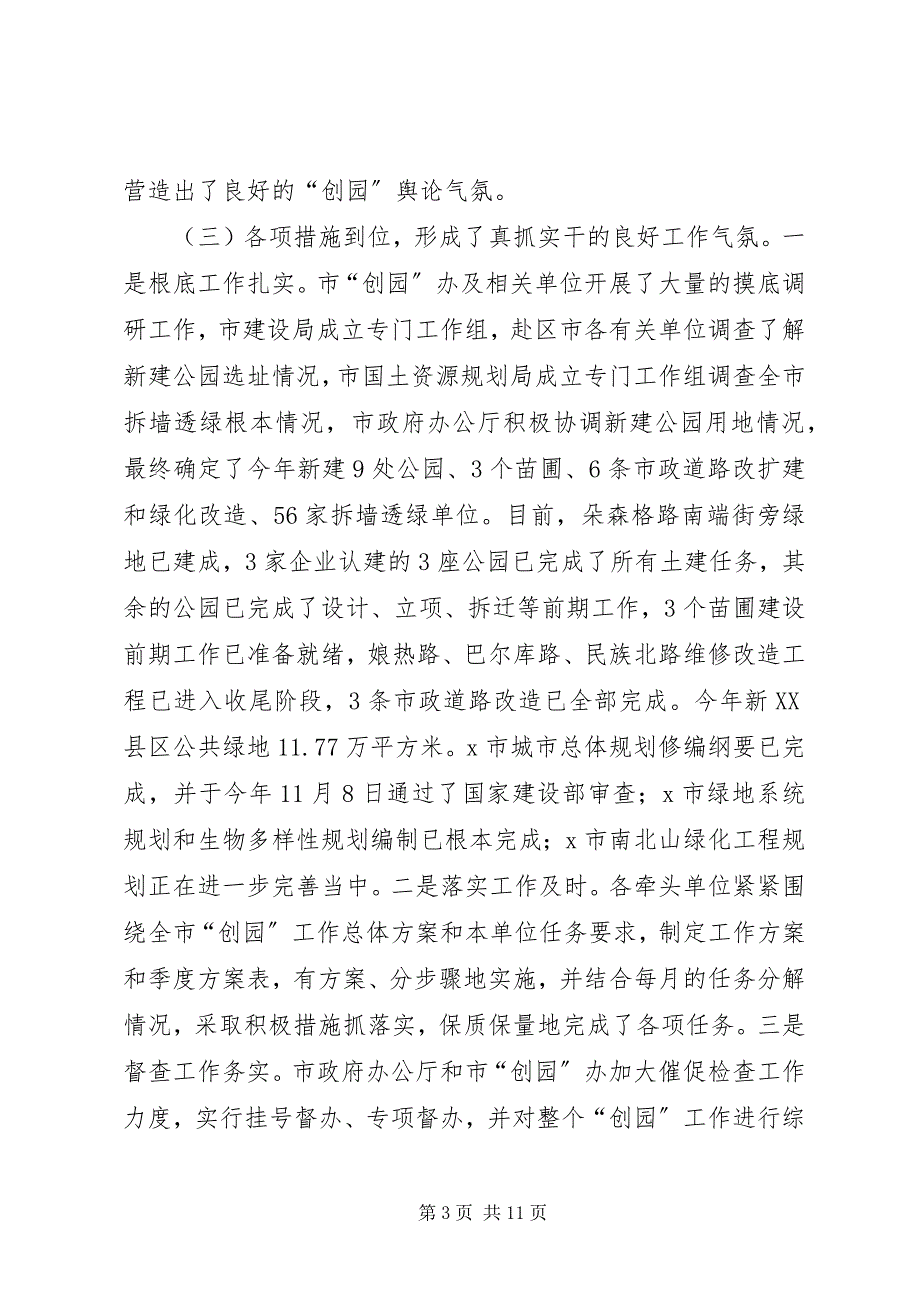 营造出了良好的“创园〞舆论气氛。
（三）各项措施到位，形成了真抓实干的良好工作气氛。一
是根底工作扎实。市“创园〞办及相关单位开展了大量的摸底调
研工作，市建设局成立专门工作组，赴区市各有关单位调查了解
新建公园选址情况，市国土资源规划局成立专门工作组调查全市
拆墙透绿根本情况，市政府办公厅积极协调新建公园用地情况，
最终确定了今年新建 9 处公园、3 个苗圃、6 条市政道路改扩建
和绿化改造、56 家拆墙透绿单位。目前，朵森格路南端街旁绿
地已建成，3 家企业认建的 3 座公园已完成了所有土建任务，其
余的公园已完成了设计、立项、拆迁等前期工作，3 个苗圃建设
前期工作已准备就绪，娘热路、巴尔库路、民族北路维修改造工
程已进入收尾阶段，3 条市政道路改造已全部完成。今年新 XX
县区公共绿地 11.77 万平方米。x 市城市总体规划修编纲要已完
成，并于今年 11 月 8 日通过了国家建设部审查；x 市绿地系统
规划和生物多样性规划编制已根本完成；x 市南北山绿化工程规
划正在进一步完善当中。二是落实工作及时。各牵头单位紧紧围
绕全市“创园〞工作总体方案和本单位任务要求，制定工作方案
和季度方案表，有方案、分步骤地实施，并结合每月的任务分解
情况，采取积极措施抓落实，保质保量地完成了各项任务。三是
督查工作务实。市政府办公厅和市“创园〞办加大催促检查工作
力度，实行挂号督办、专项督办，并对整个“创园〞工作进行综
第 3 页 共 11 页